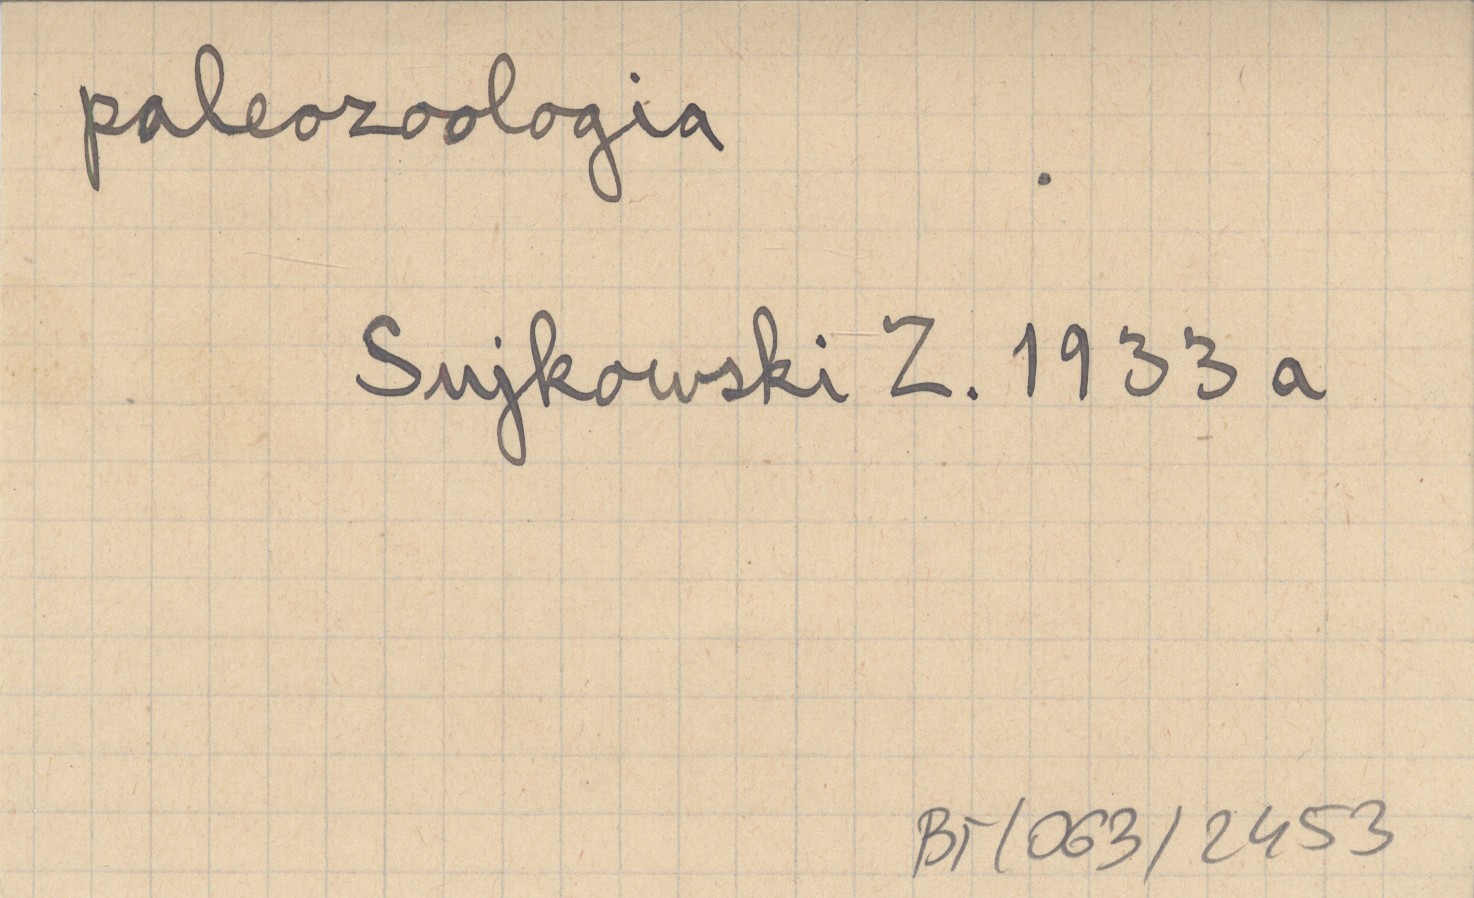 paleozoologia
Sujkowski Z. 1933 a
BT/063/2453